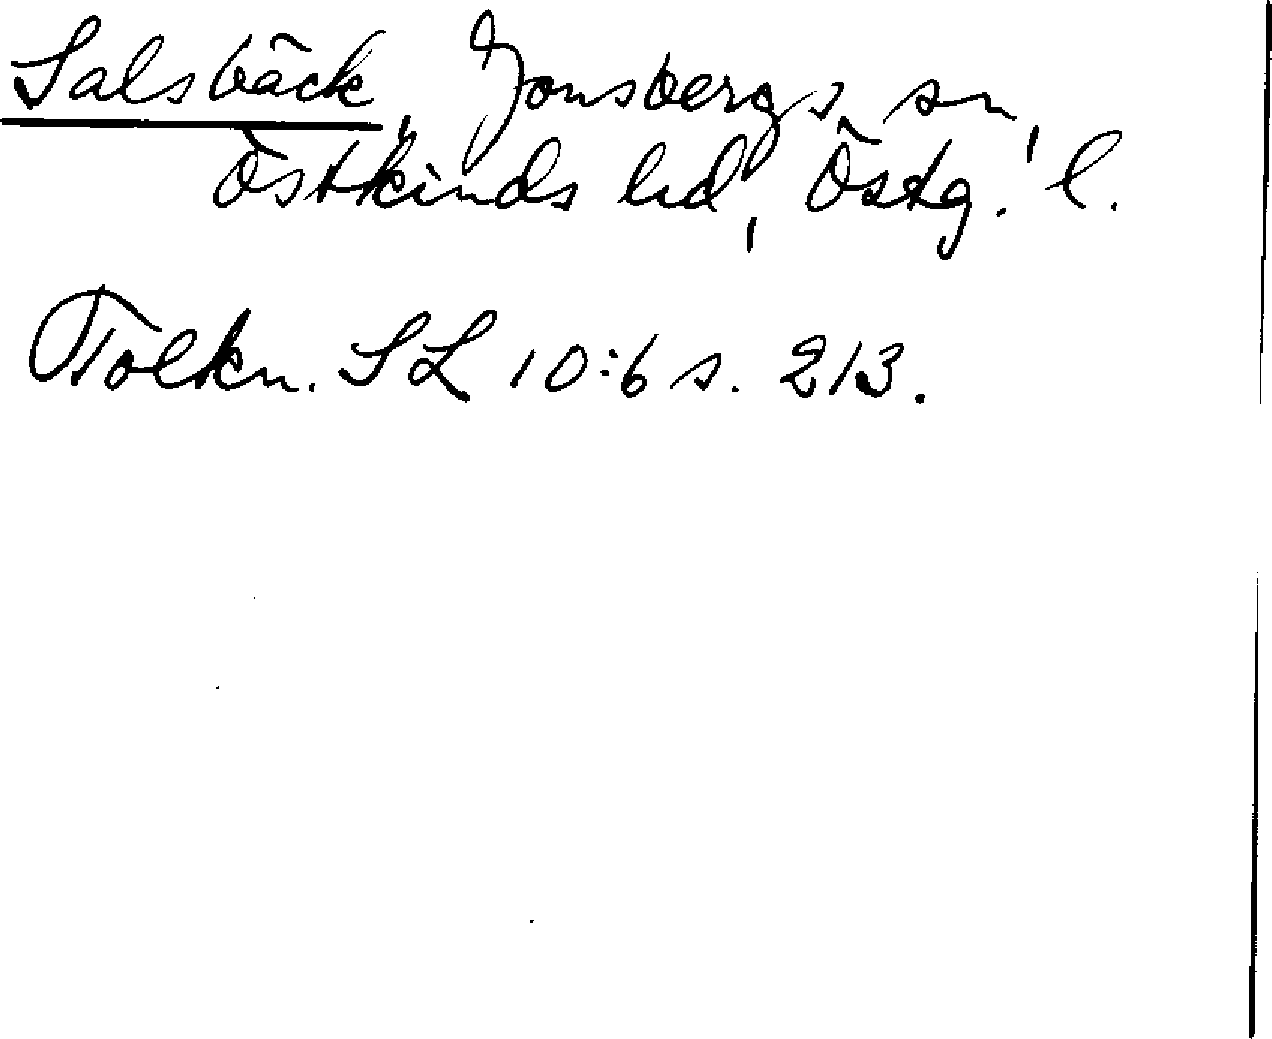 Salsbäck, Jonsbergs sn,
Östkinds hd, Östg. l.
Tolkn. SL 10:6 s. 213.